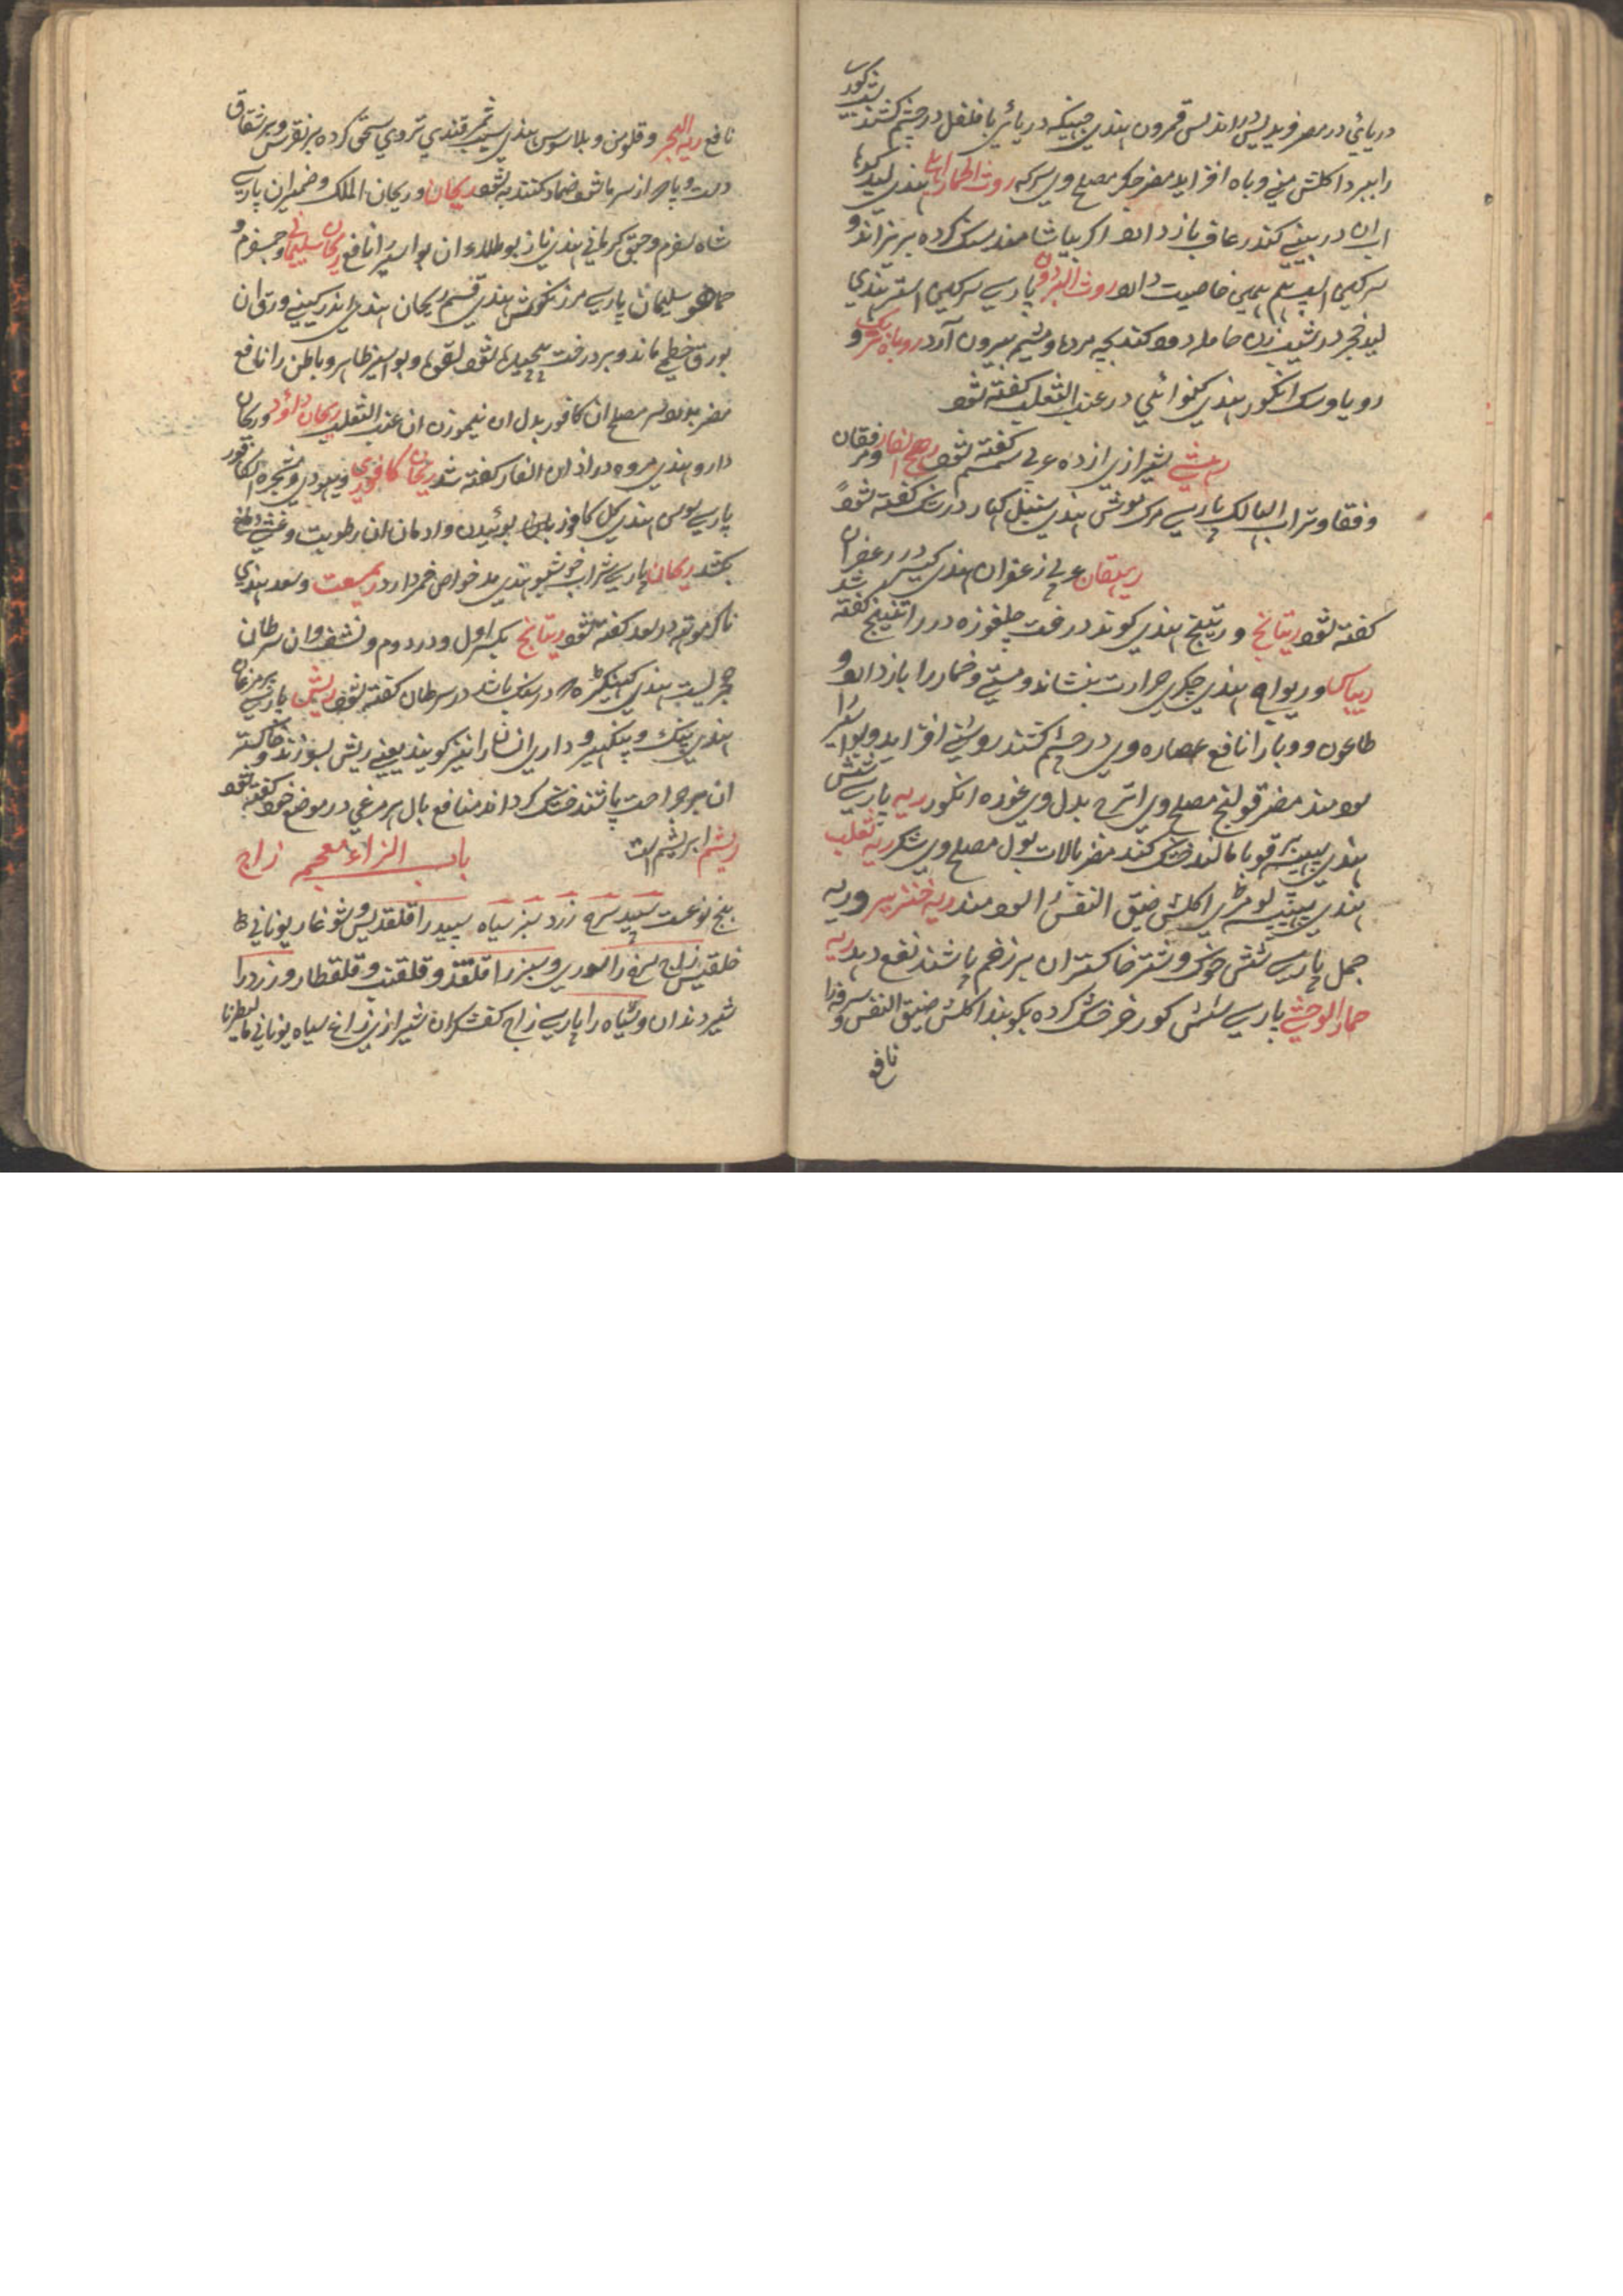 دریائی در مصر فریدیس اندلس قمرون هندی جهینکه دریائی با فلفل در چشم کشند شبکوری
را ببرد اکلش منی و باه افزاید مضر جکر مصلح وی سرکه روث الحمار اهلی هندی لید کدها
آب ان در بینی کنند رعاف باز دارد اکر بیاشامند سنک کرده بریزاند و
سرکین اسپ هم همین خاصیت دارد روث البرذون پارسی سرکین استر هندی
لید خچر در شیب زن حامله دود کنند بچه مرده و مشیمه بیرون آرد روباه تربک و
روپاوسک انکور هندی کنوائی در عنب الثعلب کفته شود
شیرازی ازده عربی سمسم کفته شود رهج الفار و مرفقان
و فقا و تراب الهالک پارسی مرک موش هندی سنبل کهار در شک کفته شود
ریهقان عربی زعفران هندی کیسر در زعفران شد
کفته شود ریتانج و ریتینج هندی کوند درخت چلغوزه در راتینج کفته
ریباس و ریواج هندی چکری حرارت بنشاند و مستی و خمار را باز دارد و
طاعون و وبا را نافع عصاره وی در چشم کشند روشنی افزاید و بواسیر را
سودمند مضر قولنج مصلح وی اترج بدل وی غوره انکور ریه پارسی شش
هندی پهیپره قوبا مالند خشک کند مضر بالات بول مصلح وی شکر ریه ثعلب
هندی پهیپره لومری اکلش ضیق النفس را سودمند ریه خنزیر و ریه
جمل پارسی شش خوک و شتر خاکستر ان بر زخم پاشند نفع دهد ریه
حمار الوحشی پارسی شش کور خر خشک کرده بکوبند اکلش ضیق النفس و سرفه را
نافع
نافع ریه البحر و قلومن و بلاسوس هندی ثمر قندی تروی سحق کرده بر نقرس و بر شقاق
دست و پا که از سرما شود ضماد کنند به شود ریحان و ریحان الملک و ضمیران پارسی
شاه سفرم و حبق کرمانی هندی نازبو طلاء ان بواسیر را نافع ریحان سلیمانی و جمسفرم و
سلیمان پارسی مرزنکوش هندی قسم ریحان هندی اندر کینی ورق ان
بورق خطمی ماند و بر درخت پیچیده شود لقوه و بواسیر ظاهر و باطن را نافع
مضر مصلح ان کافور بدل ان نیموزن ان عنب الثعلب ریحان داؤد و ریحان
دارو هندی مروه در اذان الفار کفته شد ریحان کافوری و یهودی و شجرة الکافور
پارسی سوسن هندی کل کافور بوئیدن و ادمان ان رطوبت و غشی دفع
کند ریحانی پارسی شراب خوشبو هندی مد خواص خمر دارد ریسعت و سعد هندی
ناکرموتهه در سعد کفته شود ریتانج بکسر اول و در دوم و نشف و ان سرطان
حجریست هندی کینکره در سنک باشد در سرطان کفته شود ریش پارسی پر مرغان
هندی پنک و پنکهیر و داری انسان را نیز کویند یعنی ریش بسوزند و خاکستر
ان بر جراحت پاشند خشک کرداند منافع بال هر مرغی در موضع خود کفته شود
ریشم ابریشم است باب الزاء معجم زاج
پنج نوعست سپید سرخ زرد سبز سیاه سپید را قلقدیس و شوغار یونانی
خلقیس زاج سرخ را سوری و سبز را قلقند و قلقنت و قلقطار و زرد را
شیر دندان و سیاه را پارسی زاج کفشکران شیرازی زاغ سیاه یونانی مالیطرنا